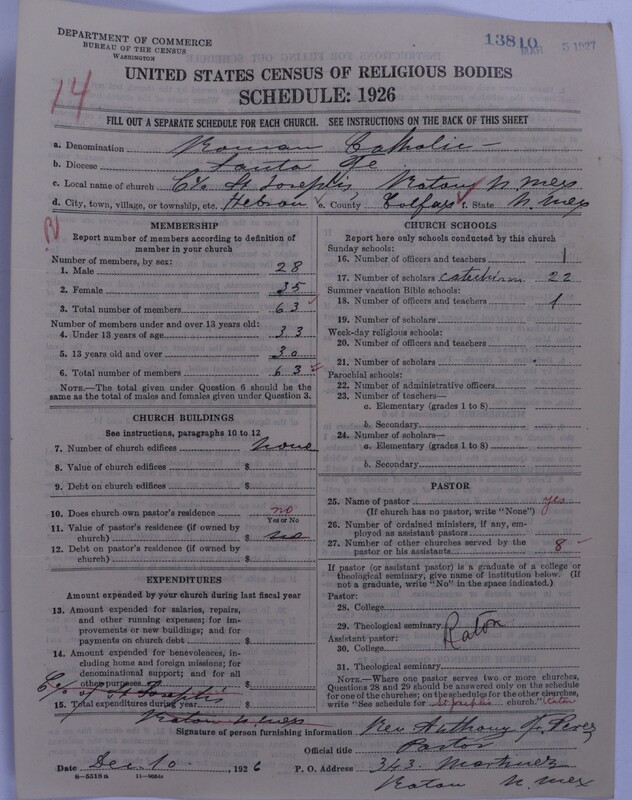 DEPARTMENT OF COMMERCE
BUREAU OF THE CENSUS
WASHINGTON
13810
MAR 5 1927
UNITED STATES CENSUS OF RELIGIOUS BODIES
SCHEDULE: 1926
14
FILL OUT A SEPARATE SCHEDULE FOR EACH CHURCH. SEE INSTRUCTIONS ON THE BACK OF THIS SHEET
a. Denomination Roman Catholic
b. Diocese Santa Fe
c. Local name of church C/o St Joseph's Raton N. Mex
d. City, town, village, or township, etc. Hebron e. County Colfax f. State N. Mex
MEMBERSHIP
Report number of members according to definition of
member in your church
Number of members, by sex:
1. Male 28
2. Female 35
3. Total number of members 63
Number of members under and over 13 years old:
4. Under 13 years of age 33
5. 13 years old and over 30
6. Total number of members 63
NOTE.—The total given under Question 6 should be
same as the total of males and females given under Question 3.
CHURCH BUILDINGS
See instructions, paragraphs 10 to 12
7. Number of church edifices none
8. Value of church edifices $
9. Debt on church edifices $
10. Does church own pastor's residence no
Yes or No
11. Value of pastor's residence (if owned by
church) $ no
12. Debt on pastor's residence (if owned by
church) $
EXPENDITURES
Amount expended by your church during last fiscal year
13. Amount expended for salaries, repairs,
and other running expenses; for im-
provements or new buildings; and for
payments on church debt $
14. Amount expended for benevolences,
including home and foreign missions; for
denominational support; and for all
other purposes $
C/o of St Joseph's
15. Total expenditures during year $
Raton N. Mex
CHURCH SCHOOLS
Report here only schools conducted by this church
Sunday schools:
16. Number of officers and teachers 1
17. Number of scholars catechism 22
Summer vacation Bible schools:
18. Number of officers and teachers 1
19. Number of scholars
Week-day religious schools:
20. Number of officers and teachers
21. Number of scholars
Parochial schools:
22. Number of administrative officers
23. Number of teachers—
a. Elementary (grades 1 to 8)
b. Secondary
24. Number of scholars—
a. Elementary (grades 1 to 8)
b. Secondary
PASTOR
25. Name of pastor yes
(If church has no pastor, write "None")
26. Number of ordained ministers, if any, em-
ployed as assistant pastors
27. Number of other churches served by the
pastor or his assistants 8
If pastor (or assistant pastor) is a graduate of a college or
theological seminary, give name of institution below. (If
not a graduate, write "No" in the space indicated.)
Pastor:
28. College
29. Theological seminary Raton
Assistant pastor:
30. College
31. Theological seminary
NOTE.—Where one pastor serves two or more churches,
Questions 28 and 29 should be answered only on the schedule
for one of the churches; on the schedules for the other churches,
write "See schedule for St Josephs church." Raton
Signature of person furnishing information Rev Anthony
Official title Pastor
Date Dec. 10, 1926 P. O. Address 343 Martinez
Raton N. Mex
8—5518a 11—9054a